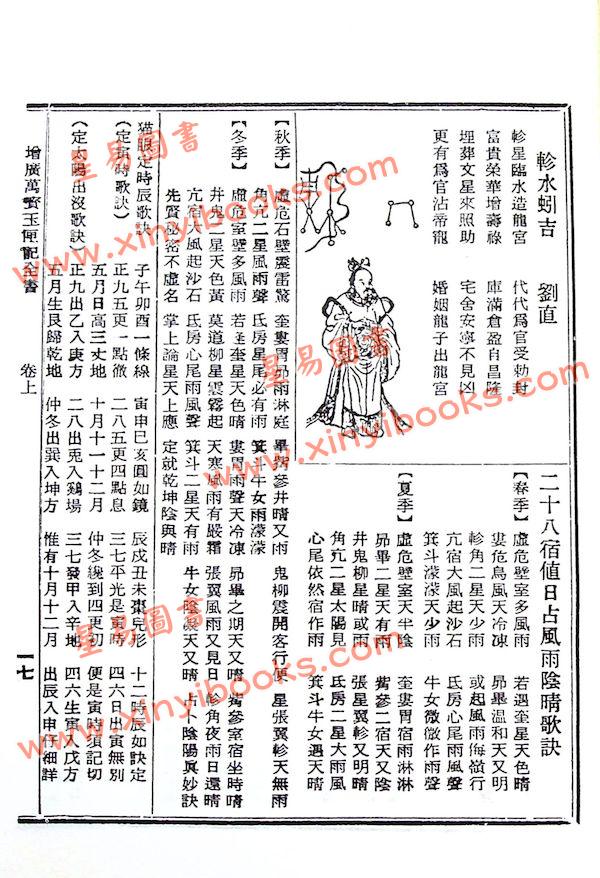 軫水蚓吉　劉直
軫星臨水造龍宮　代代為官受勅封
富貴榮華增壽祿　庫滿倉盈自昌隆
埋葬文星來照助　宅舍安寧不見凶
更有為官沾帝寵　婚姻龍子出龍宮
二十八宿值日占風雨陰晴歌訣
【春季】虛危室壁多風雨　若遇奎星天色晴
婁危烏風天冷凍　昴畢溫和天又明
軫角二星天少雨　或起風雨嶺行
亢宿大風起沙石　氐房心尾雨風聲
箕斗濛濛天少雨　牛女微微作雨聲
【夏季】虛危壁室天半陰　奎婁胃宿雨淋淋
昴畢二星天有雨　觜參二宿天又陰
井鬼柳星晴或雨　張星翼軫又明晴
角亢二星太陽見　氐房二星大雨風
心尾依然宿作雨　箕斗牛女遇天晴
【秋季】虛危石壁震雷驚　奎婁胃昴雨淋庭　畢觜參井晴又雨　鬼柳開客行便　星張翼軫天無雨
角亢二星風雨聲　氐房星尾必有雨　箕斗牛女雨濛濛
【冬季】虛危室壁多風雨　若逢奎星天色晴　婁胃雨聲天冷凍　昴畢之期天又晴　觜參室宿坐時晴
井鬼二星天色黃　莫道柳星雲霧起　天寒風雨有嚴霜　張翼風雨又見日　軫角夜雨日還晴
亢宿大風起沙石　氐房心尾雨風聲　箕斗二星天有雨　牛女陰凝天又晴　占卜陰陽真妙訣
先賢秘密不虛名　掌上論星天上應　定就乾坤陰與晴
猫眼定時辰歌訣　子午卯酉一條線　寅申巳亥圓如鏡　辰戌丑未棗兒形　十二時辰如訣定
（定寅時歌訣）正九五更一點徹　二八五更四點息　三七平光是寅時　四六日出寅無別
五月日高三丈地　十月十一十二月　仲冬纔到四更初　便是寅時須記切
（定太陽出沒歌訣）正九出乙入庚方　二八出兎入鷄場　三七發甲入辛地　四六生寅入戊方
五月生艮歸乾地　仲冬出巽入坤方　惟有十月十二月　出辰入申仔細詳
增廣萬寶玉匣記全書　卷上　一七
星易圖書
www.xinyibooks.com
星易圖書
www.xinyibooks.com
星易圖書
www.xinyibooks.com
星易圖書
www.xinyibooks.com